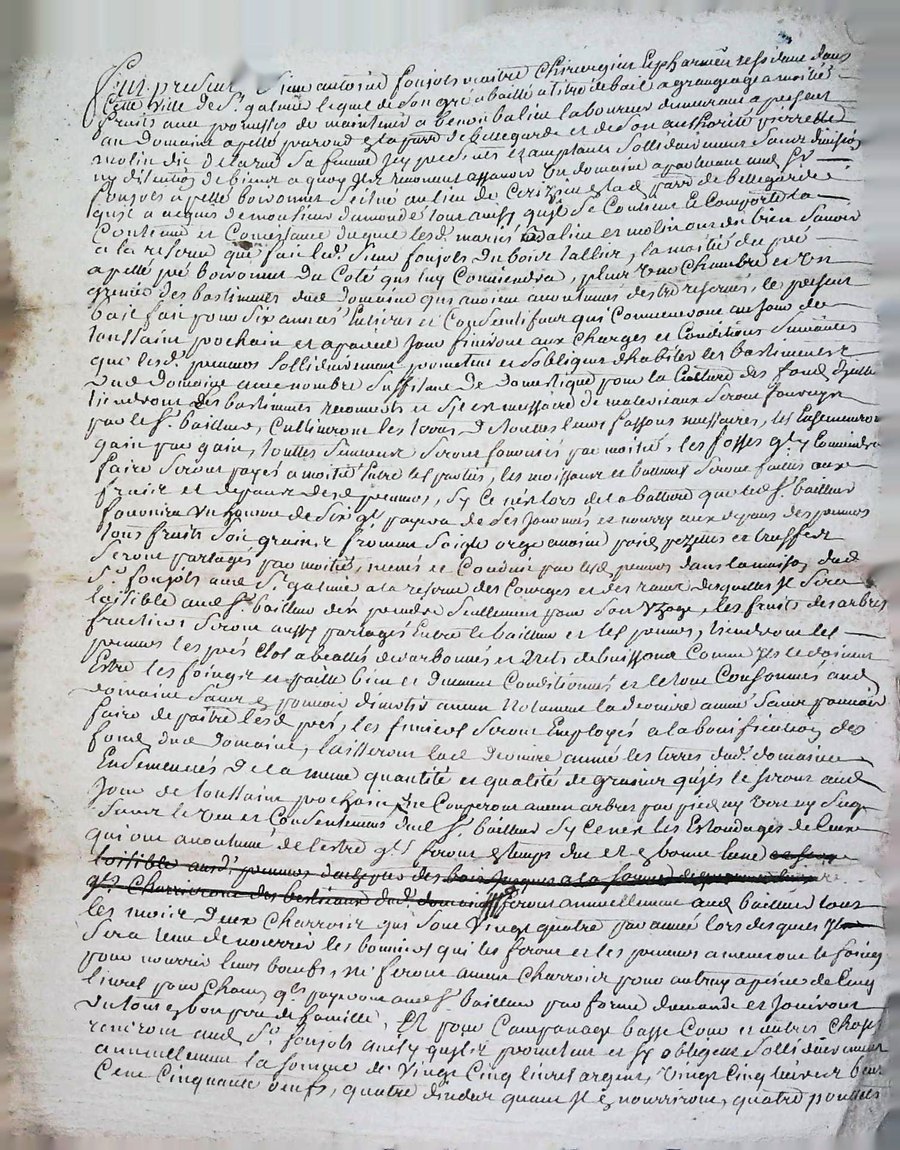 Fut présent Sieur antoine foujols maitre Chirurgien Et pharmen residant dans
Cette ville de St galmier lequel de Son gré a baillé a titre de bail a grangeage a moitié
fruits avec promesses de maintenir a benoit baline laboureur demeurant a present
au Domaine apellé parroud parr de bellegarde et de Son authorité pierrette
molin dit Sa femme Icy presents et acceptants Sollidairement Sans division
ny discution de biens a quoy Ils renoncent assavoir Un domaine apartenant aud Sr
foujols apellé boivonnet Scitué au lieu de parr de bellegarde
quil a acquis de monsieur tout ainsy quil Se Contient Et Comporte
Contient et Consistance duquel lesd. mariés baline et molin ont dit bien Scavoir
a la reserve que fait led. Sieur foujols du bois tallier, la moitié du pré
apellé pré boivonnet Du Coté qui luy Conviendra, plus Une Chambre et Un
grenier des bastiments dud Domaine qui avoient acoutumés destre reservés, le present
bail fait pour Six années Entieres et Consecutives qui Commenceront au Jour de
toussaint prochain et a pareil Jour finiront aux Charges et Conditions Suivantes
que lesd. preneurs Sollidairement promettent et Sobligent dhabiter les bastiments
dud Domaine avec nombre Suffisant De domestiques pour la Culture des fonds
tiendront les bastiments recouverts et Sil est necessaire de materiaux Seront fournys
par led Sr. bailleur, Cultiveront les terres de touttes leurs fassons necessaires, les
gain par gain, touttes Semences Seront fournies par moitié, les fosses quil Conviendra
faire Seront payés a moitié Entre les parties, les moissons et battures Seront faites aux
fraix et depens desd preneurs, Sy Ce nest lors de la batture que led Sr. bailleur
fournira Un homme de Six quil payera de Ses Journées et nourry aux depens des preneurs
tous fruits Soit grains froment Soigle orge avoine pois pezettes et truffes
Seront partagés par moitié, menés et Conduits par lesd preneurs dans la maison dud
Sr. foujols aud St. galmier a la reserve des Courges et des raves desquelles Il Sera
loisible aud Sr. bailleur den prendre Seullement pour Son Uzage, les fruits des arbres
fructiers Seront aussy partagés Entre le bailleur et les preneurs, tiendront les
preneurs les prés Clos abeallés derarbonnés et Nets de buissons Comme Ils le doivent
Estre les foins et paille bien et duement Conditionnés et le tout Consommés aud
domaine Sans pouvoir divertir aucun Notament la derniere année Sans pouvoir
faire depaitre lesd prés, les fumiers Seront Employés a la bonification des
fonds dud Domaine, laisseront lad derniere année les terres dud. domaine
Ensemencés De la meme quantité et qualité de grains quils le Seront aud
Jour de toussaint prochain, ne Couperont aucun arbres par pied ny
Sans le veu et Consentement dud Sr. bailleur Sy Ce nest les Estondages de Ceux
qui ont acoutumé de lestre quils feront temps du et bonne lune
loisible aud. preneurs
quils Charrieront des bestiaux dud. domaine feront annuellement aud bailleur tous
les mois Deux Charrois qui Sont Vingt quatre par année lors desquels
Sera tenu de nourrir les bouviers qui les feront et les preneurs ameneront le foing
pour nourrir leurs boeufs, ne feront aucun Charrois pour autruy a peine de Cinq
livres pour Chacun quils payeront aud Sr. bailleur par forme damande et Jouiront
du tout bon pere de famille, Et pour Campanage basse Cour et autres Choses
remetront aud Sr. foujols ainsy quils promettent et Sy obligent Sollidairement
annuellement la Somme de Vingt Cinq livres argent, Vingt Cinq livres beurre
Cent Cinquante oeufs, quatre dindes quand Il nourriront, quatre poullets